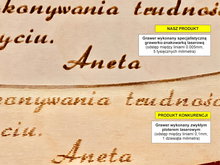 konywania trudnośc
yciu.
Aneta
NASZ PRODUKT
Grawer wykonany specjalistyczną
grawerko-znakowarką laserową
(odstęp między liniami 0.005mm,
5 tysięcznych milimetra)
konywania trudnośc
yciu.
Aneta
PRODUKT KONKURENCJI
Grawer wykonany zwykłym
ploterem laserowym
(odstęp między liniami 0,1mm,
1 dziesiąta milimetra)